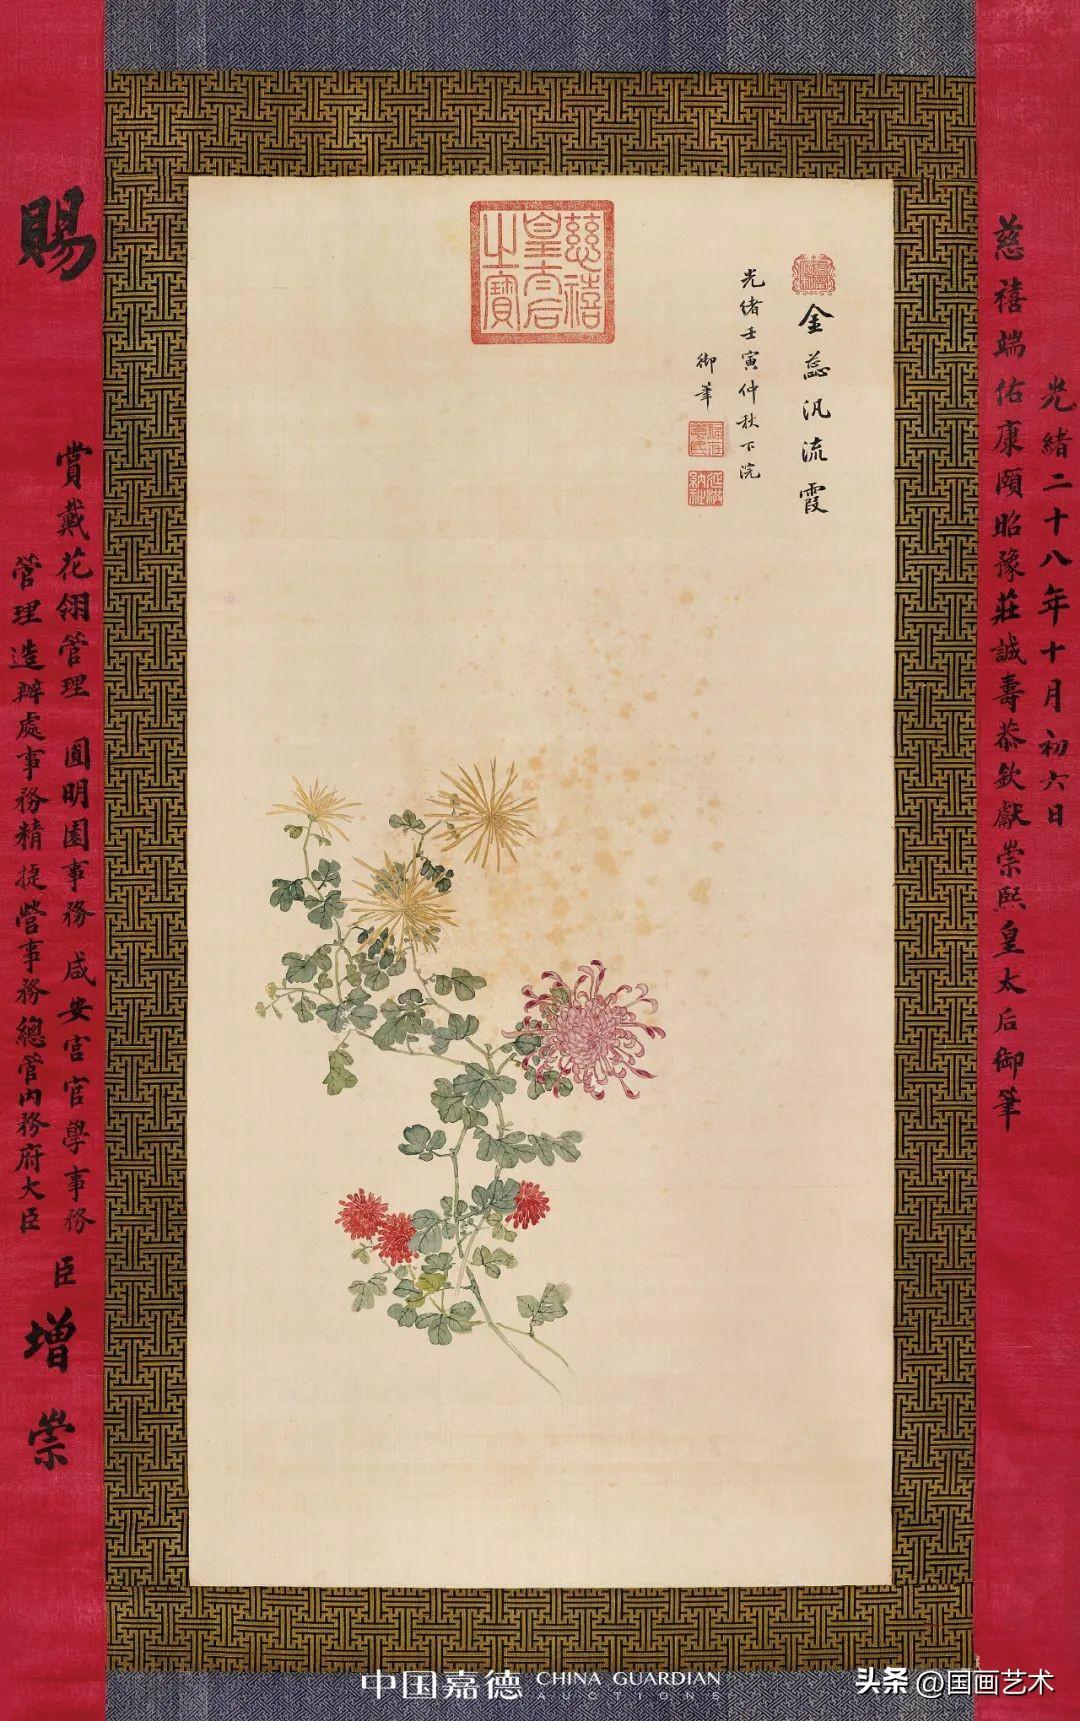 光緒二十八年十月初六日
慈禧端佑康頤昭豫莊誠壽恭欽獻崇熙皇太后御筆
金蕊汎流霞
光緒壬寅仲秋下浣
御筆
慈禧
皇太后
之寶
賜
賞戴花翎管理 圓明園事務 咸安宮官學事務
管理造辦處事務精捷營事務總管內務府大臣
臣 增崇
中国嘉德 CHINA GUARDIAN
AUCTIONS
头条 @国画艺术